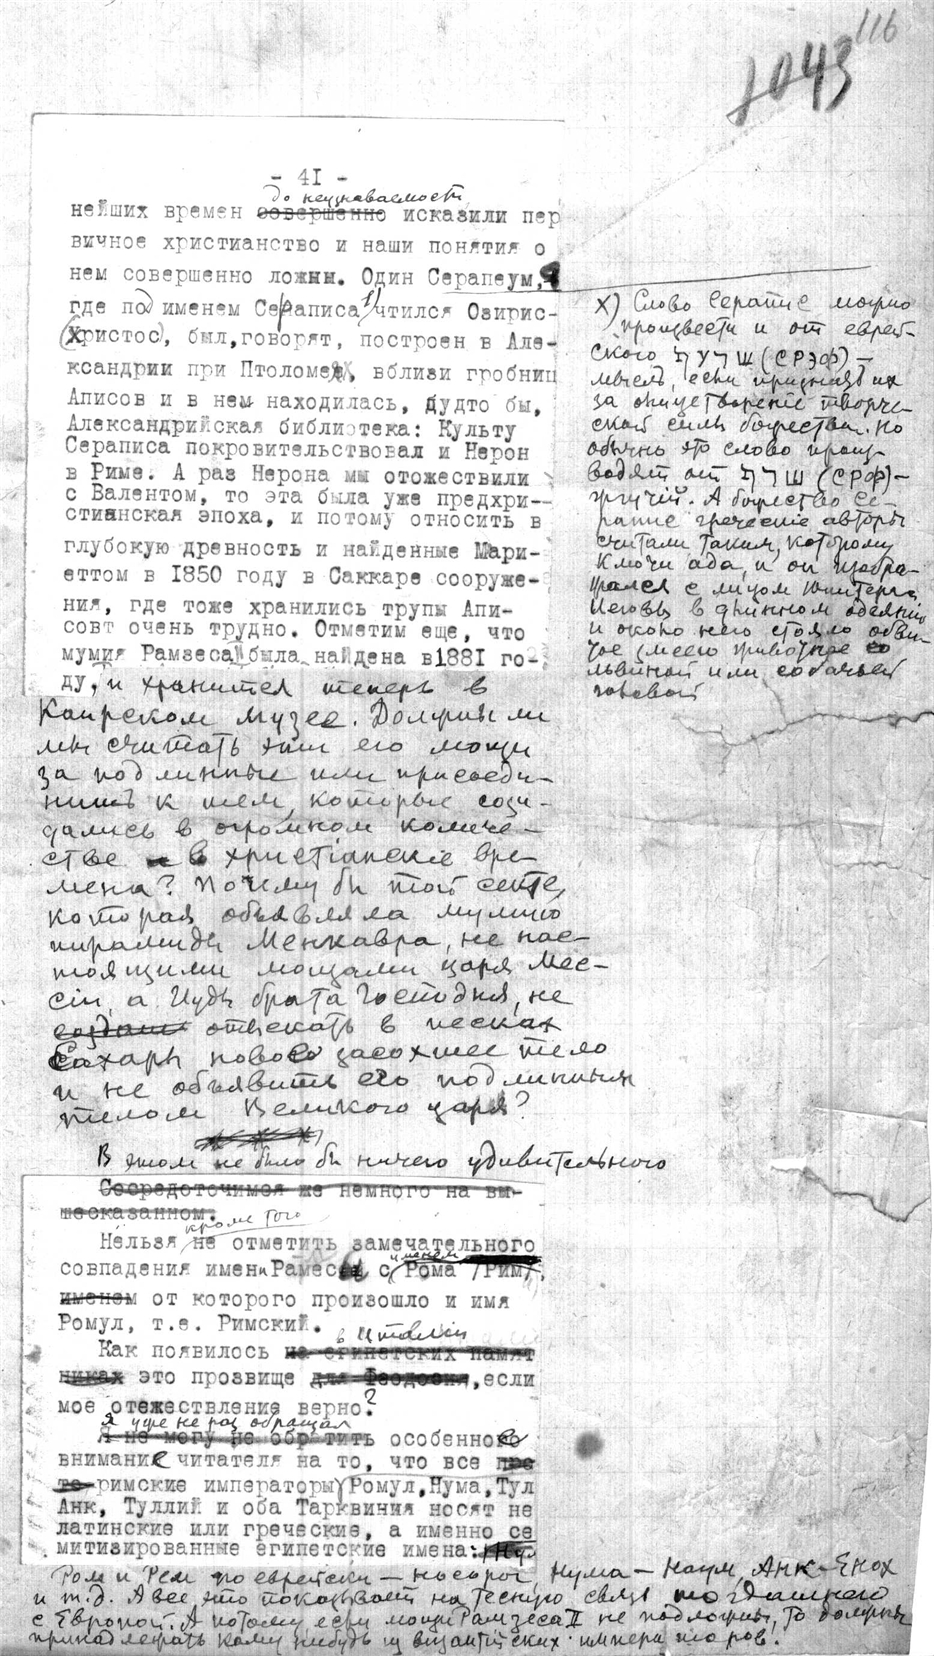 116
1043
- 41 -
до неузнаваемости
нейших времен совершенно исказили пер
вичное христианство и наши понятия о
нем совершенно ложны. Один Серапеум,
где под именем Сераписа чтился Озирис-
(Христос), был, говорят, построен в Але-
ксандрии при Птоломее, вблизи гробниц
Аписов и в нем находилась, будто бы,
Александрийская библиотека: Культу
Сераписа покровительствовал и Нерон
в Риме. А раз Нерона мы отожествили
с Валентом, то эта была уже предхри-
стианская эпоха, и потому относить в
глубокую древность и найденные Мари-
еттом в 1850 году в Саккаре сооруже-
ния, где тоже хранились трупы Апи-
совт очень трудно. Отметим еще, что
мумия Рамзеса II была найдена в 1881 го-
ду, и хранится теперь в
Каирском музее. Должны ли
мы считать эти его мощи
за подлинные или присоеди-
нить к тем, которые созда-
дались в огромном количе-
стве в христіанскіе вре-
мена? Почему бы той секте,
которая объявляла мумию
пирамиды Менкавра, не нас-
тоящими мощами царя Мес-
сіи, а Иуды брата Господня, не
создать отыскать в песках
Сахары новое засохшее тело
и не объявить его подлинным
телом Великого царя?
В этом не было бы ничего удивительного
Сосредоточимся же немного на вы-
шесказанном.
кроме того
Нельзя не отметить замечательного
именем
совпадения имени Рамеса с Рома /Рим/,
именем от которого произошло и имя
Ромул, т.е. Римский.
в Италіи
Как появилось на египетских памят
никах это прозвище для Феодосия, если
мое отежествление верно?
Я уже не раз обращал
Я не могу не обратить особенное
внимание читателя на то, что все
римские императоры Ромул, Нума, Тул
Анк, Туллий и оба Тарквиния носят не
латинские или греческие, а именно се
митизированные египетские имена:
Ром и Рем по еврейски — носорог, Нума — Наум, Анк — Енох
и т.д. А все это показывает на тесную связь
с Европой. А потому если мощи Рамзеса II не подложны, то должны
принадлежать кому нибудь из византійских императоров.
х) Слово Серапис можно
произвести и от еврей-
ского (СРЭФ) —
мысль, если признать их
за олицетвореніе творче-
ской силы божества. Но
обычно это слово произ-
водят от (СРФ) —
жгучій. А божество Се-
рапис греческіе авторы
считали таким, которому
ключи ада, и он изобра-
жался с лицом Юпитера
Иеговы в длинном одеяніи
и около него стояло обви-
тое змеею животное со
львиной или собачьей
головой